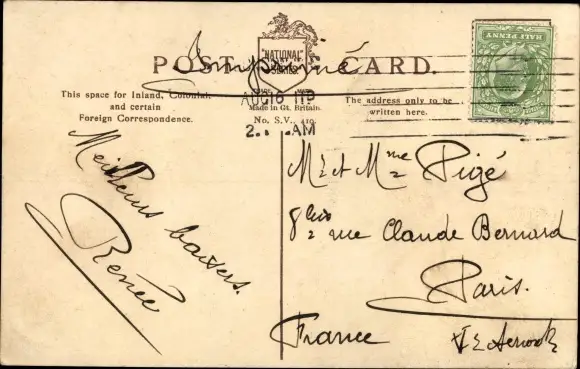 POST CARD.
"NATIONAL"
SERIES
Imprimé
This space for Inland, Colonial,
and certain
Foreign Correspondence.
AUG 16 11
2. AM
Made in Gt. Britain.
No. S.V.
The address only to be
written here.
HALF PENNY
Meilleurs baisers.
Renée
Mr et Mme Pigé
8 bis rue Claude Bernard
Paris.
France